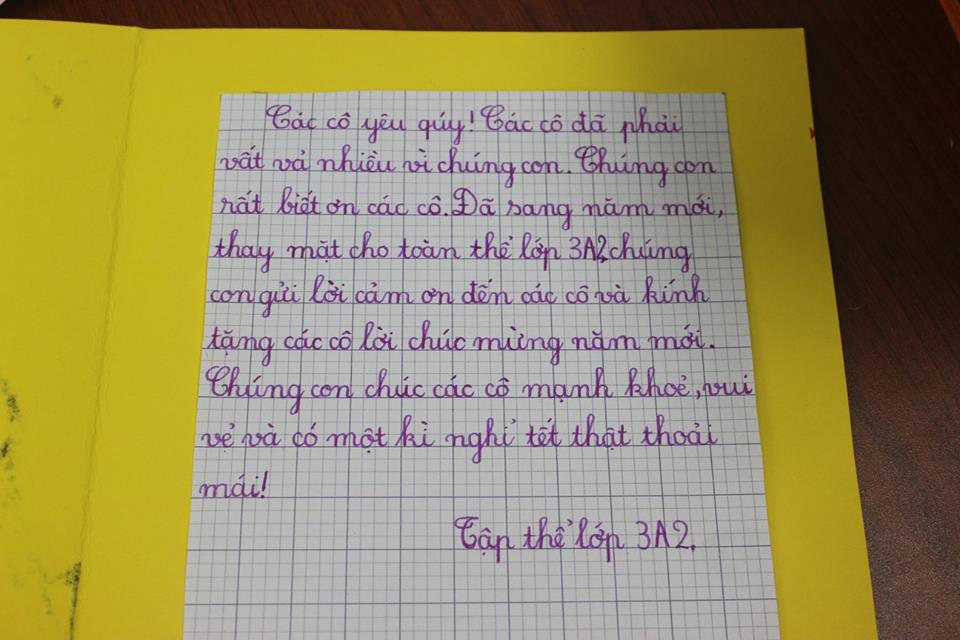 Các cô yêu qúy! Các cô đã phải
vất vả nhiều vì chúng con. Chúng con
rất biết ơn các cô. Đã sang năm mới,
thay mặt cho toàn thể lớp 3A2, chúng
con gửi lời cảm ơn đến các cô và kính
tặng các cô lời chúc mừng năm mới.
Chúng con chúc các cô mạnh khoẻ, vui
vẻ và có một kì nghỉ tết thật thoải
mái!
Tập thể lớp 3A2.